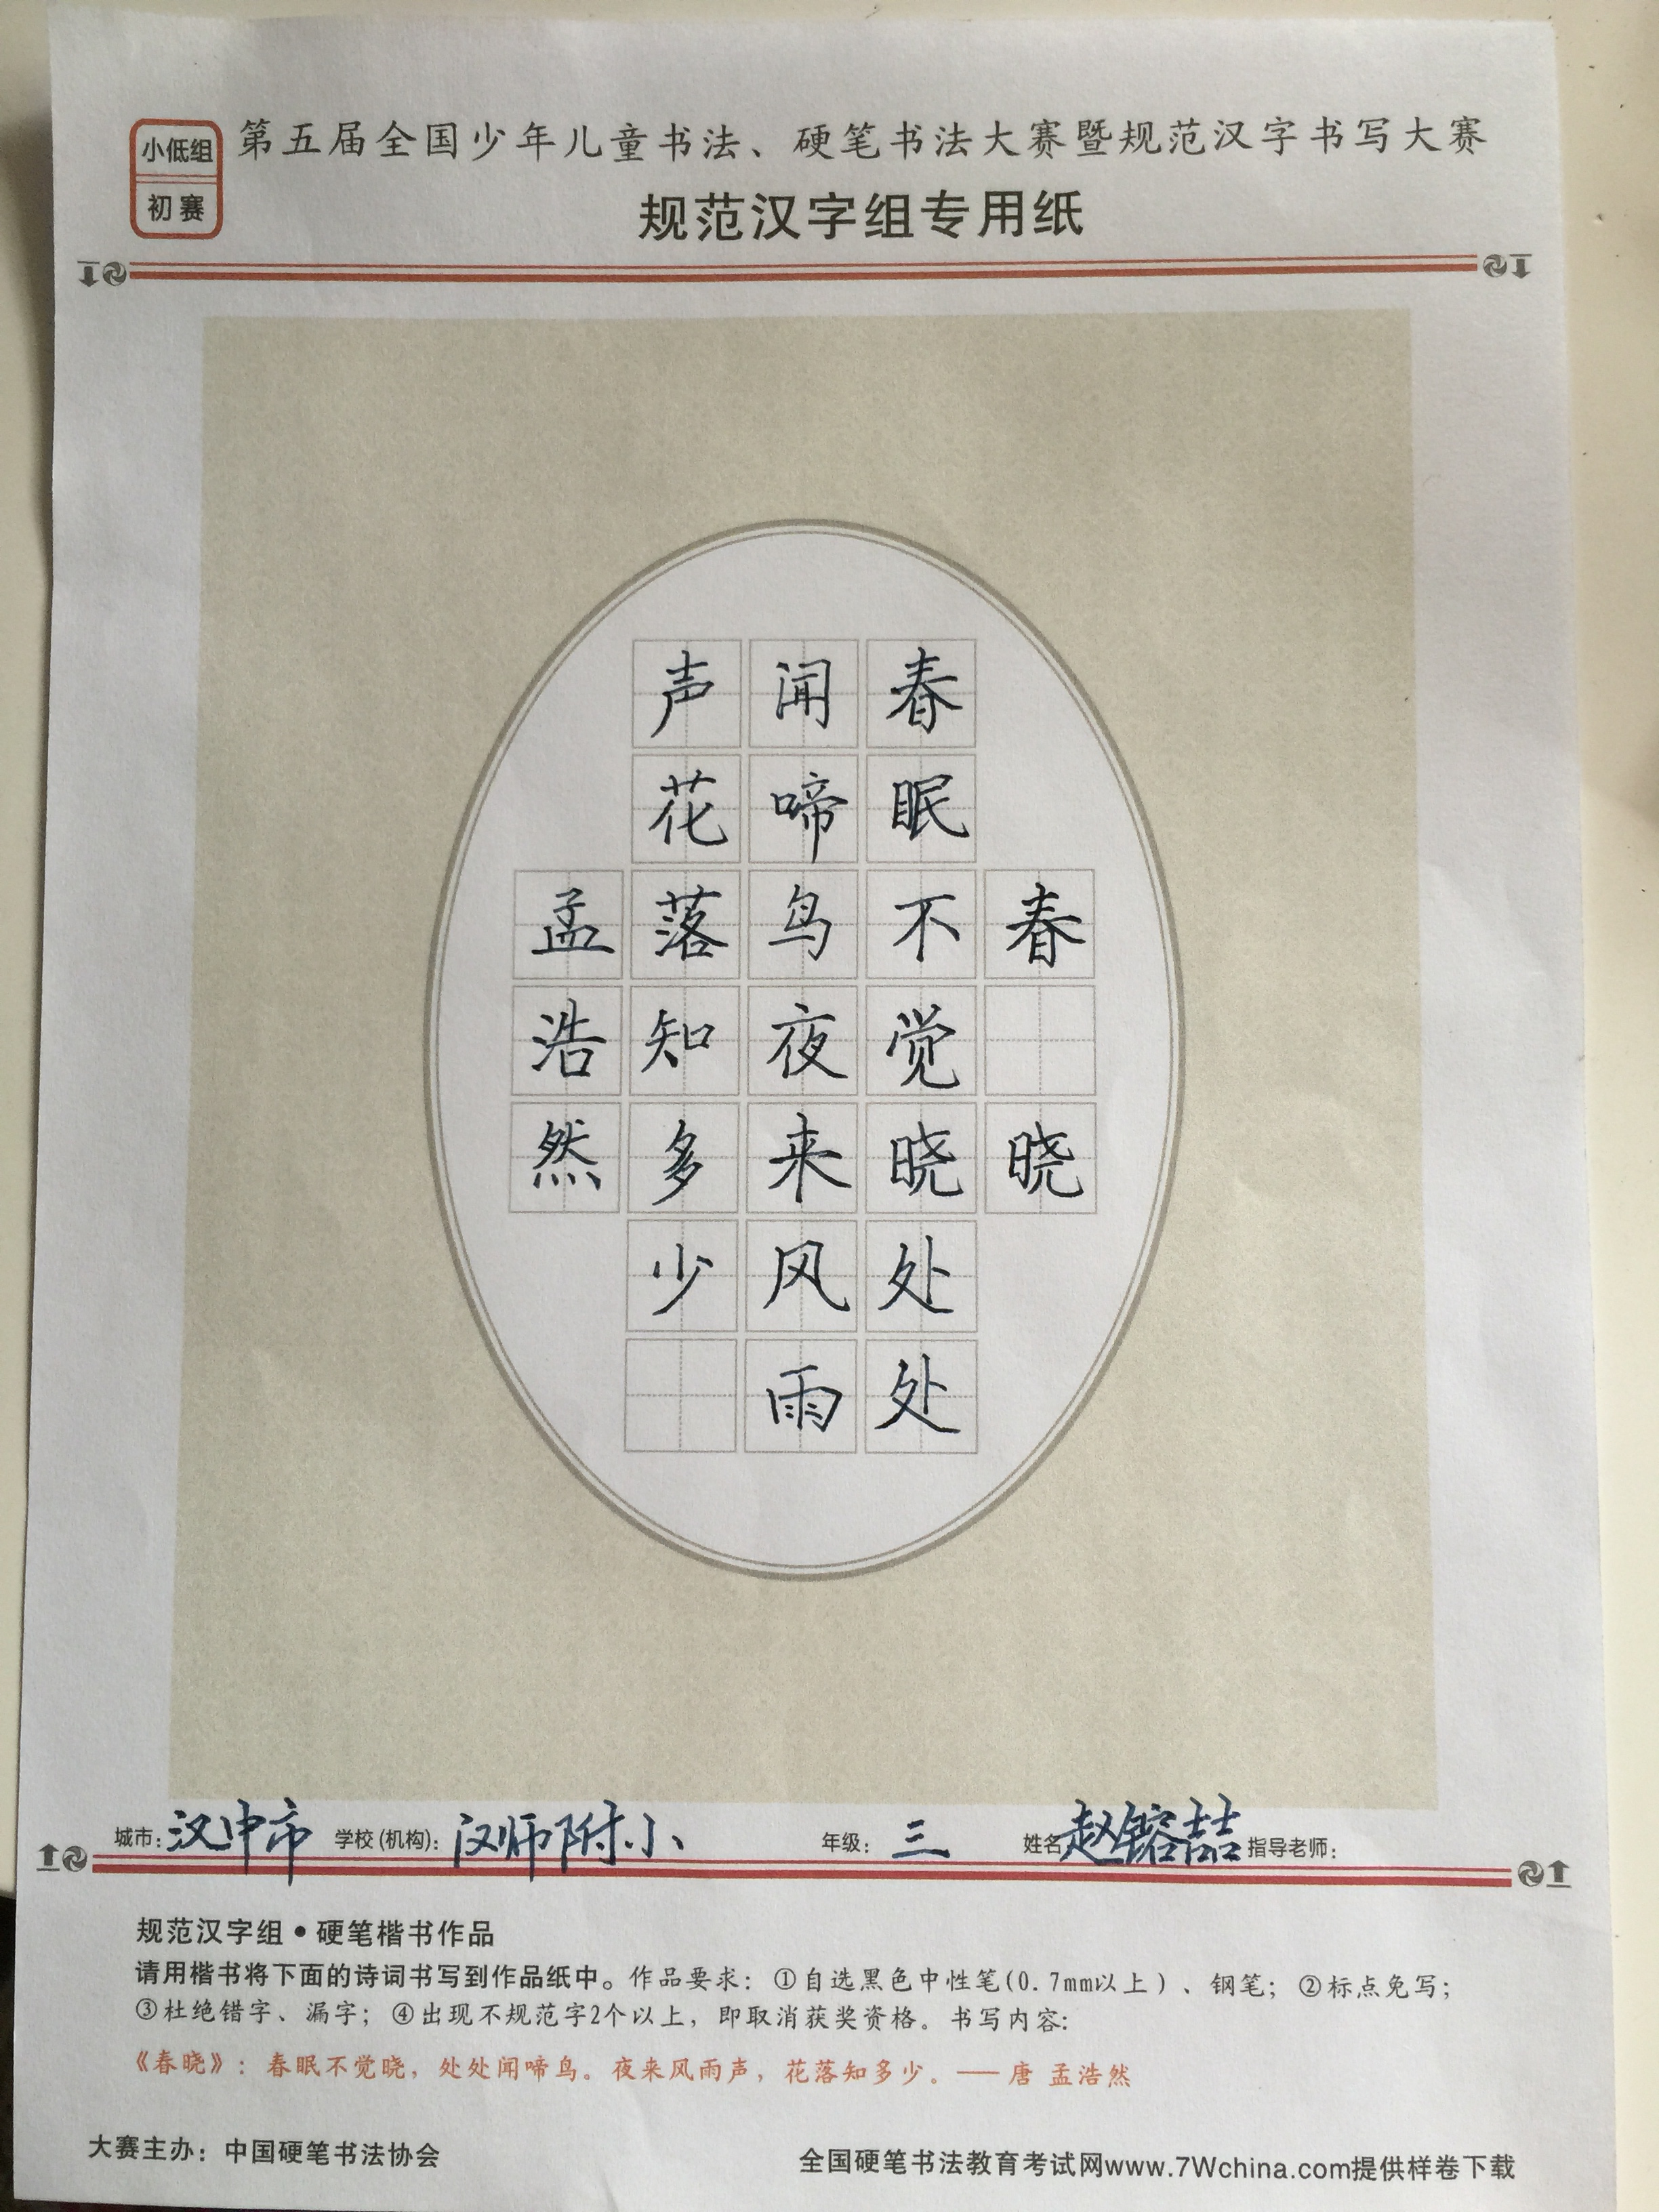 小低组
初赛
第五届全国少年儿童书法、硬笔书法大赛暨规范汉字书写大赛
规范汉字组专用纸
春晓
春眠不觉晓处处
闻啼鸟夜来风雨
声花落知多少
孟浩然
城市：汉中市 学校(机构)：汉师附小 年级：三 姓名 赵镕喆 指导老师：
规范汉字组•硬笔楷书作品
请用楷书将下面的诗词书写到作品纸中。作品要求：①自选黑色中性笔(0.7mm以上)、钢笔；②标点免写；
③杜绝错字、漏字；④出现不规范字2个以上，即取消获奖资格。书写内容：
《春晓》：春眠不觉晓，处处闻啼鸟。夜来风雨声，花落知多少。——唐 孟浩然
大赛主办：中国硬笔书法协会
全国硬笔书法教育考试网www.7Wchina.com提供样卷下载